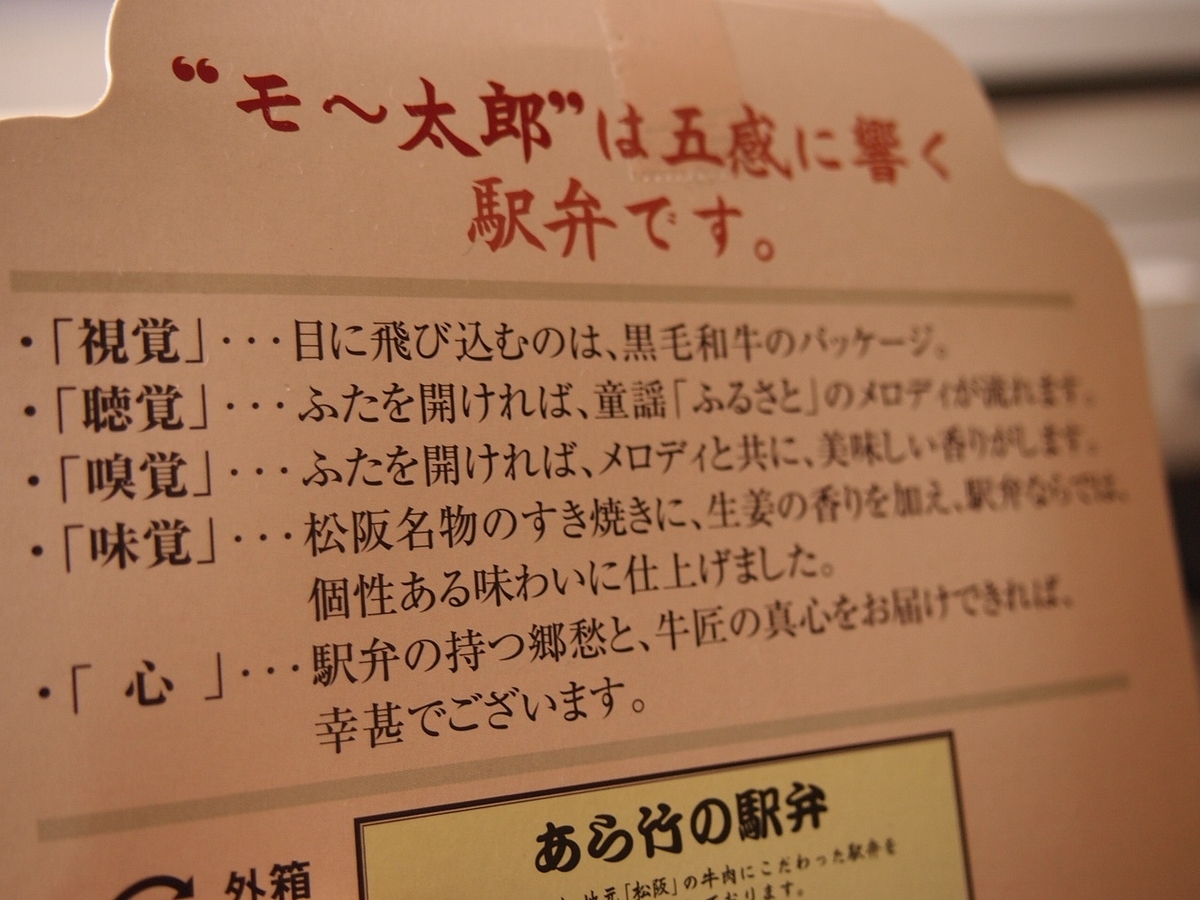 “モ～太郎”は五感に響く
駅弁です。
・「視覚」･･･目に飛び込むのは、黒毛和牛のパッケージ。
・「聴覚」･･･ふたを開ければ、童謡「ふるさと」のメロディが流れます。
・「嗅覚」･･･ふたを開ければ、メロディと共に、美味しい香りがします。
・「味覚」･･･松阪名物のすき焼きに、生姜の香りを加え、駅弁ならでは、
個性ある味わいに仕上げました。
・「 心 」･･･駅弁の持つ郷愁と、牛匠の真心をお届けできれば、
幸甚でございます。
あら竹の駅弁
外箱
地元「松阪」の牛肉にこだわった駅弁を
ております。